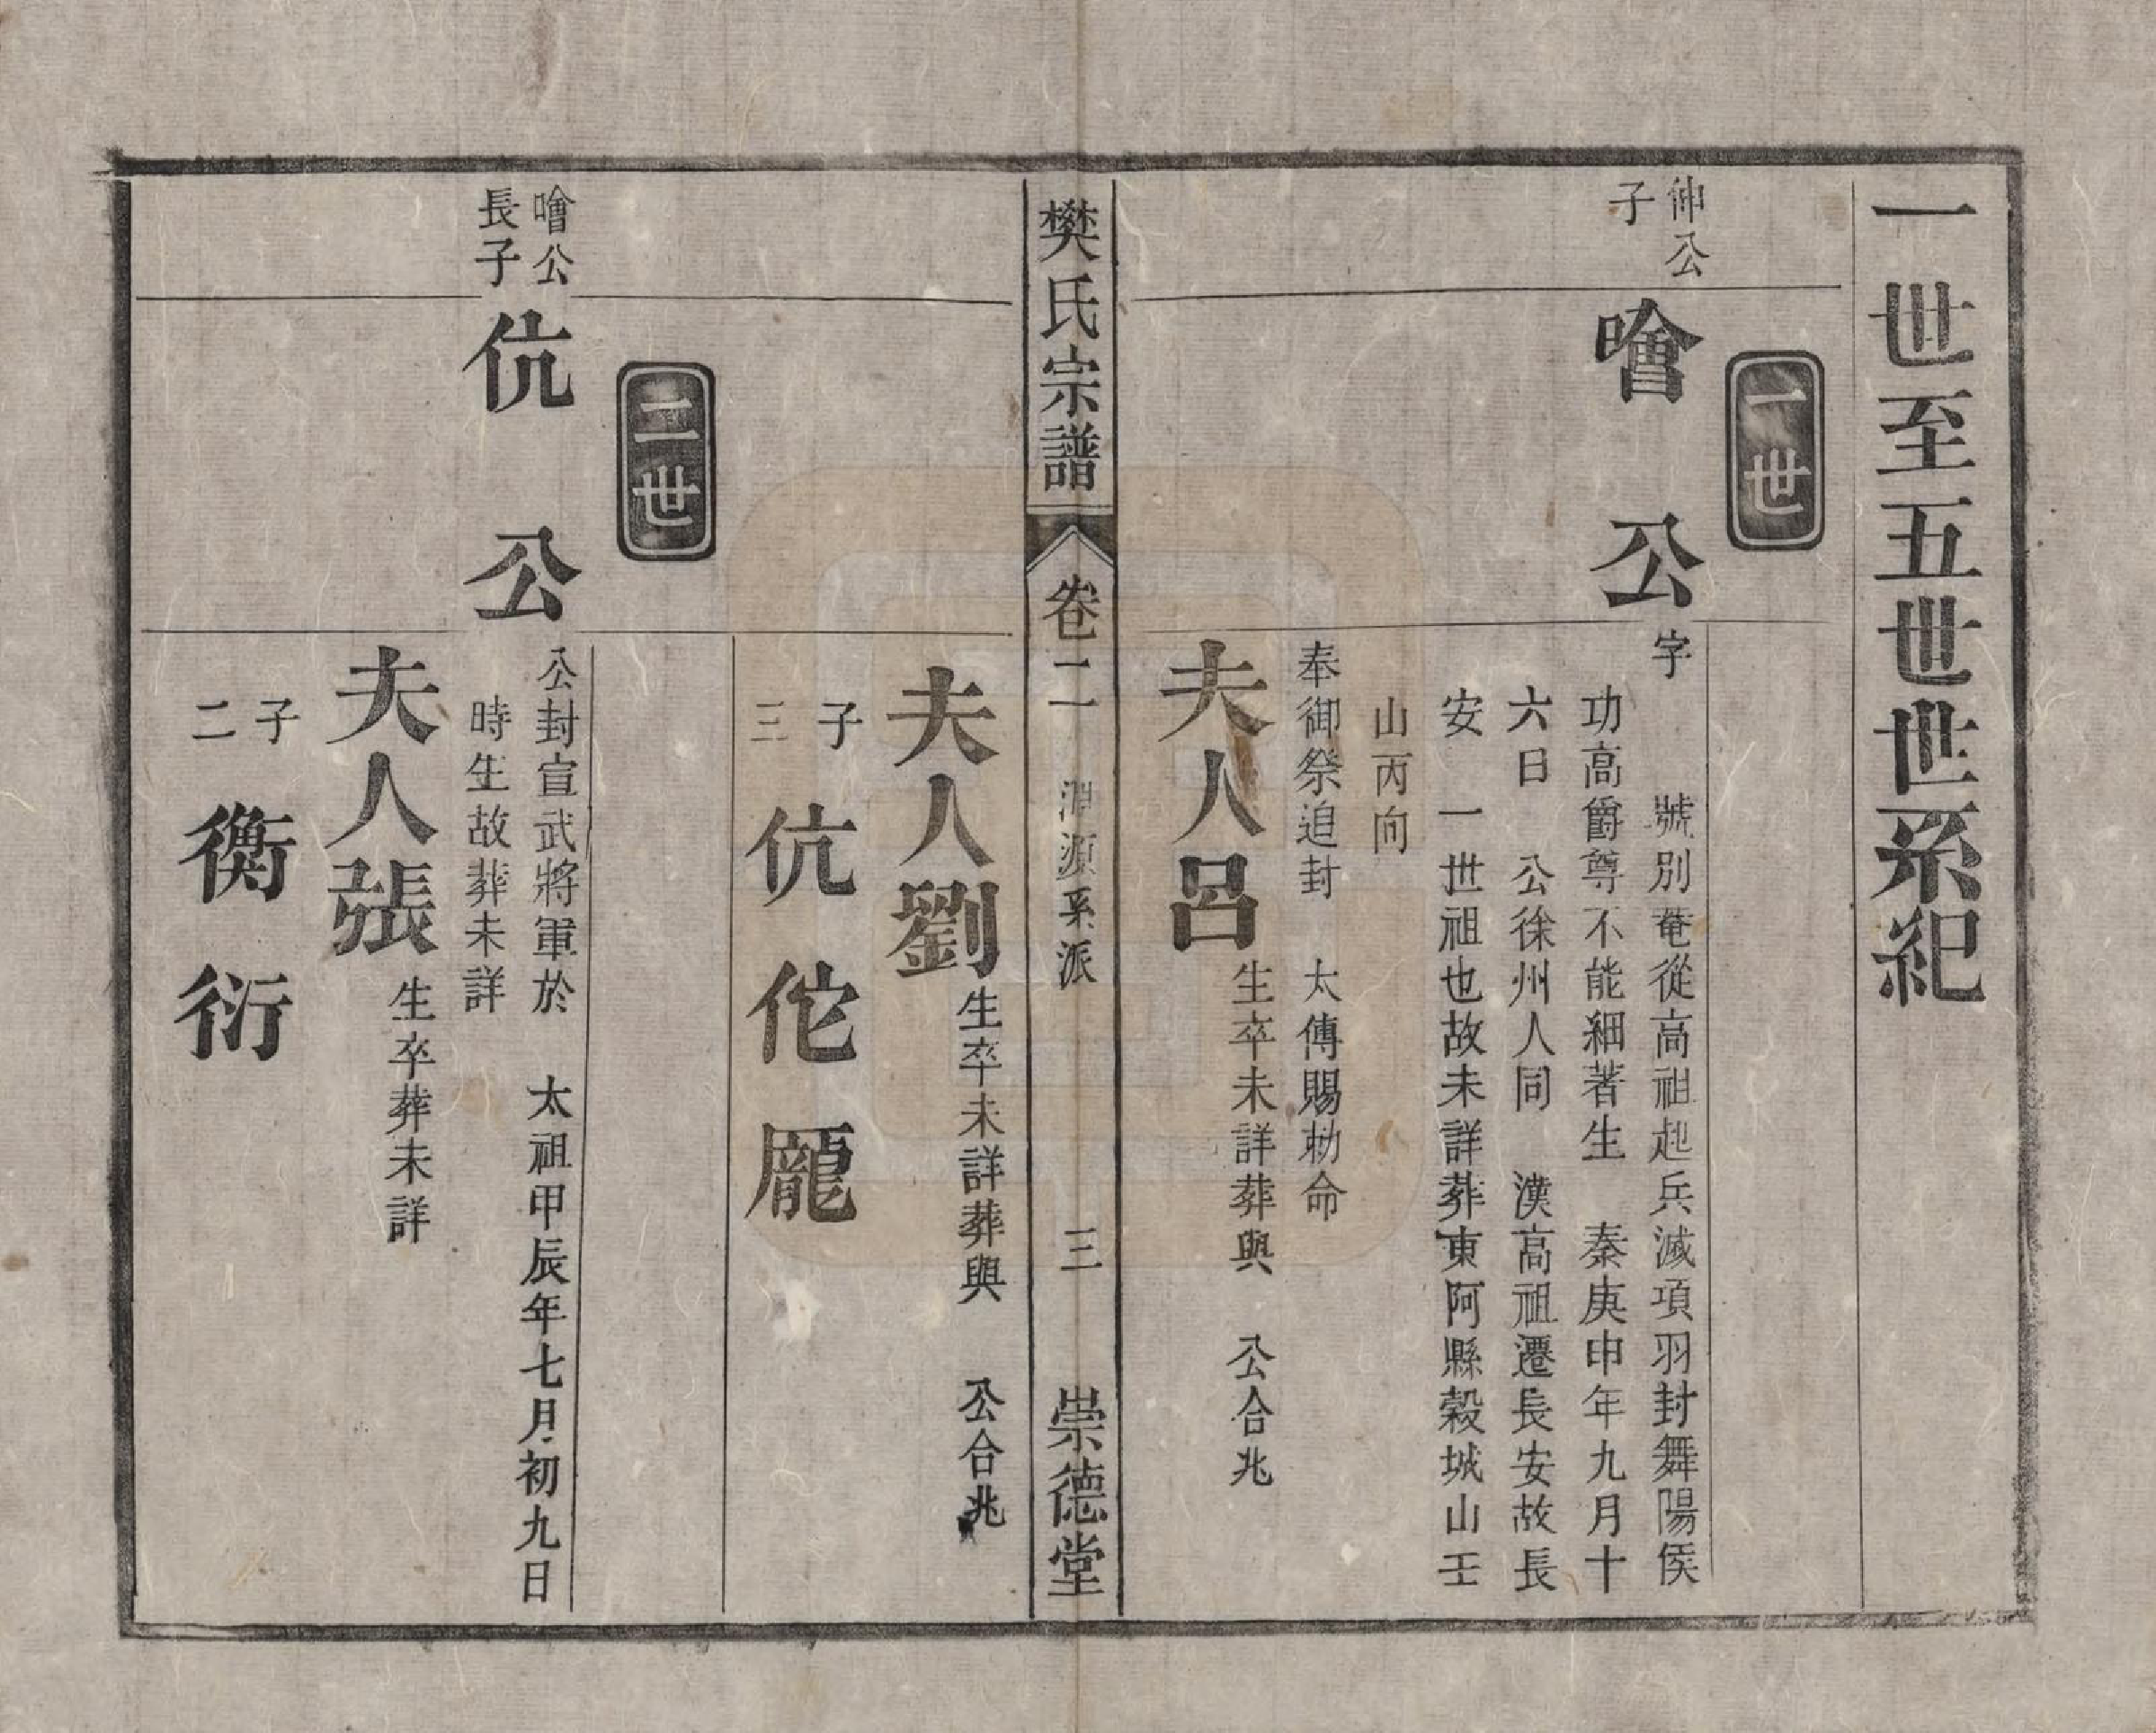 一世至五世世系紀
一世
仲公
子
噲公
字　號別菴從高祖起兵滅項羽封舞陽侯
功高爵尊不能細著生　秦庚申年九月十
六日　公徐州人同　漢高祖遷長安故長
安　一世祖也故未詳葬東阿縣穀城山壬
山丙向
奉御祭追封　太傅賜勅命
夫人呂
生卒未詳葬與　公合兆
樊氏宗譜
卷二
淵源系派
三
崇德堂
夫人劉
生卒未詳葬與　公合兆
子
三
伉
佗
龎
二世
噲公
長子
伉公
公封宣武將軍於　太祖甲辰年七月初九日
時生故葬未詳
夫人張
生卒葬未詳
子
二
衡
衍